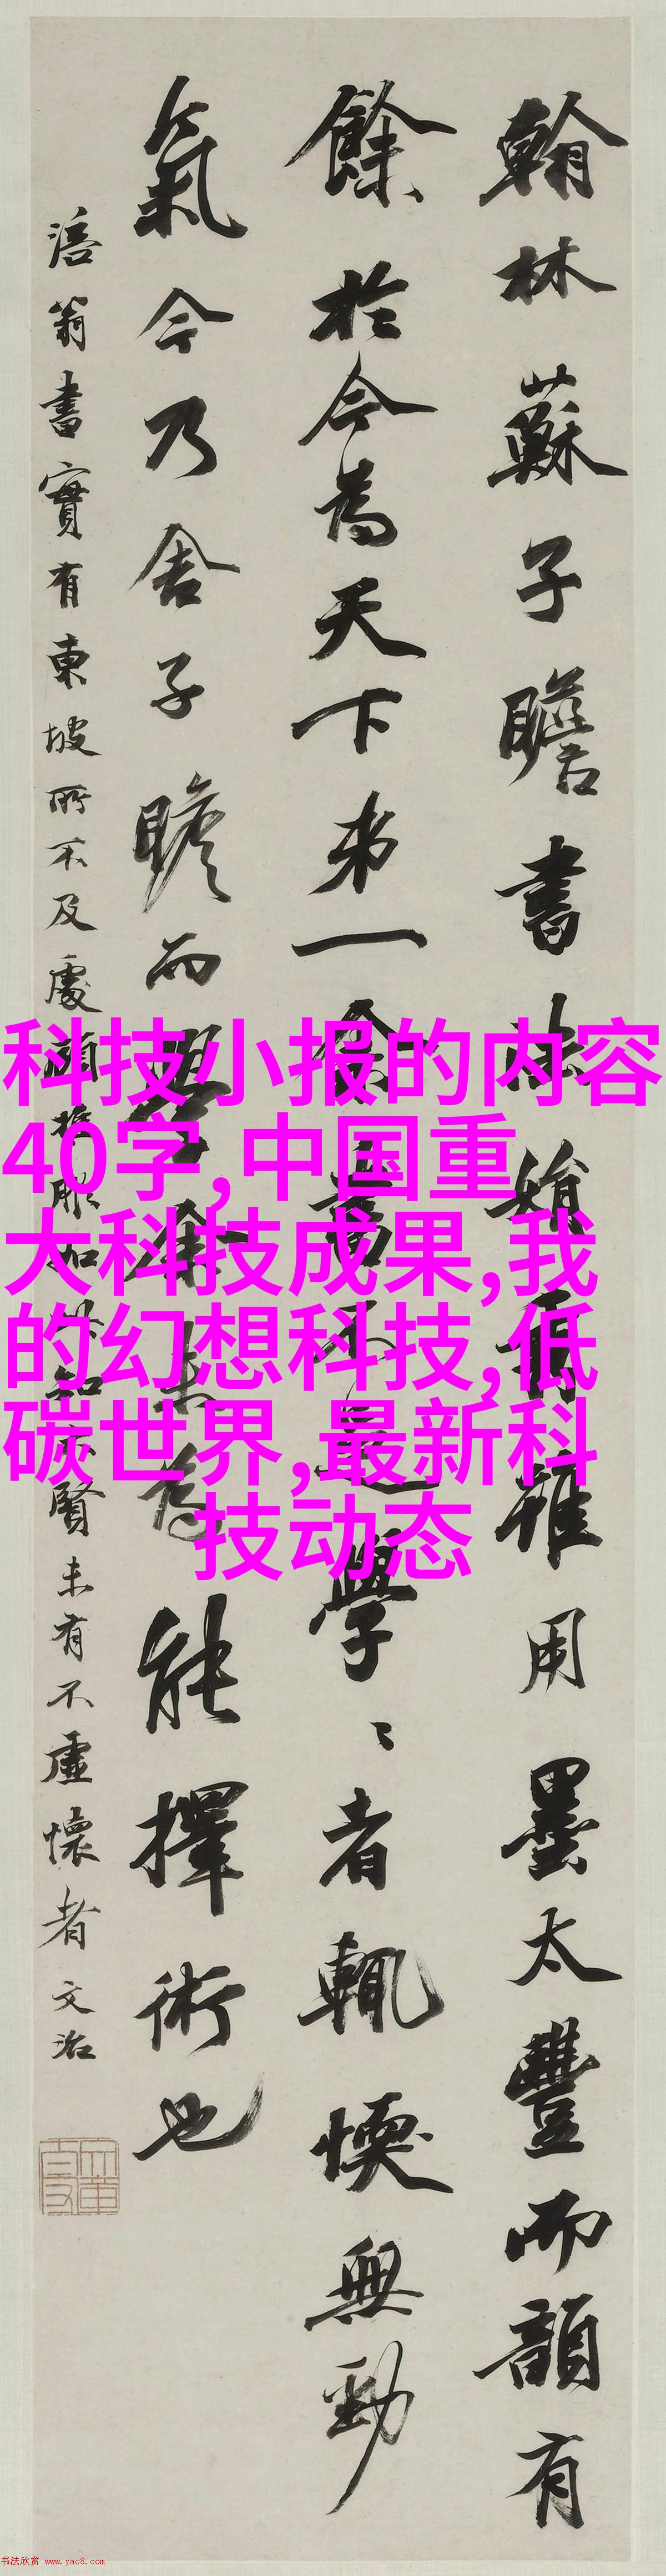 翰林蘇子瞻書法娟秀雖用墨太豐而韻有
餘於今為天下第一余書不足學〻者輒愞無勁
氣今乃舍子瞻而學余未為能擇術也
涪翁書實有東坡所不及處顧推服如此知賢未有不虛懷者文治
科技小报的内容
40字,中国重
大科技成果,我
的幻想科技,低
碳世界,最新科
技动态
书法欣赏 www.yac8.com